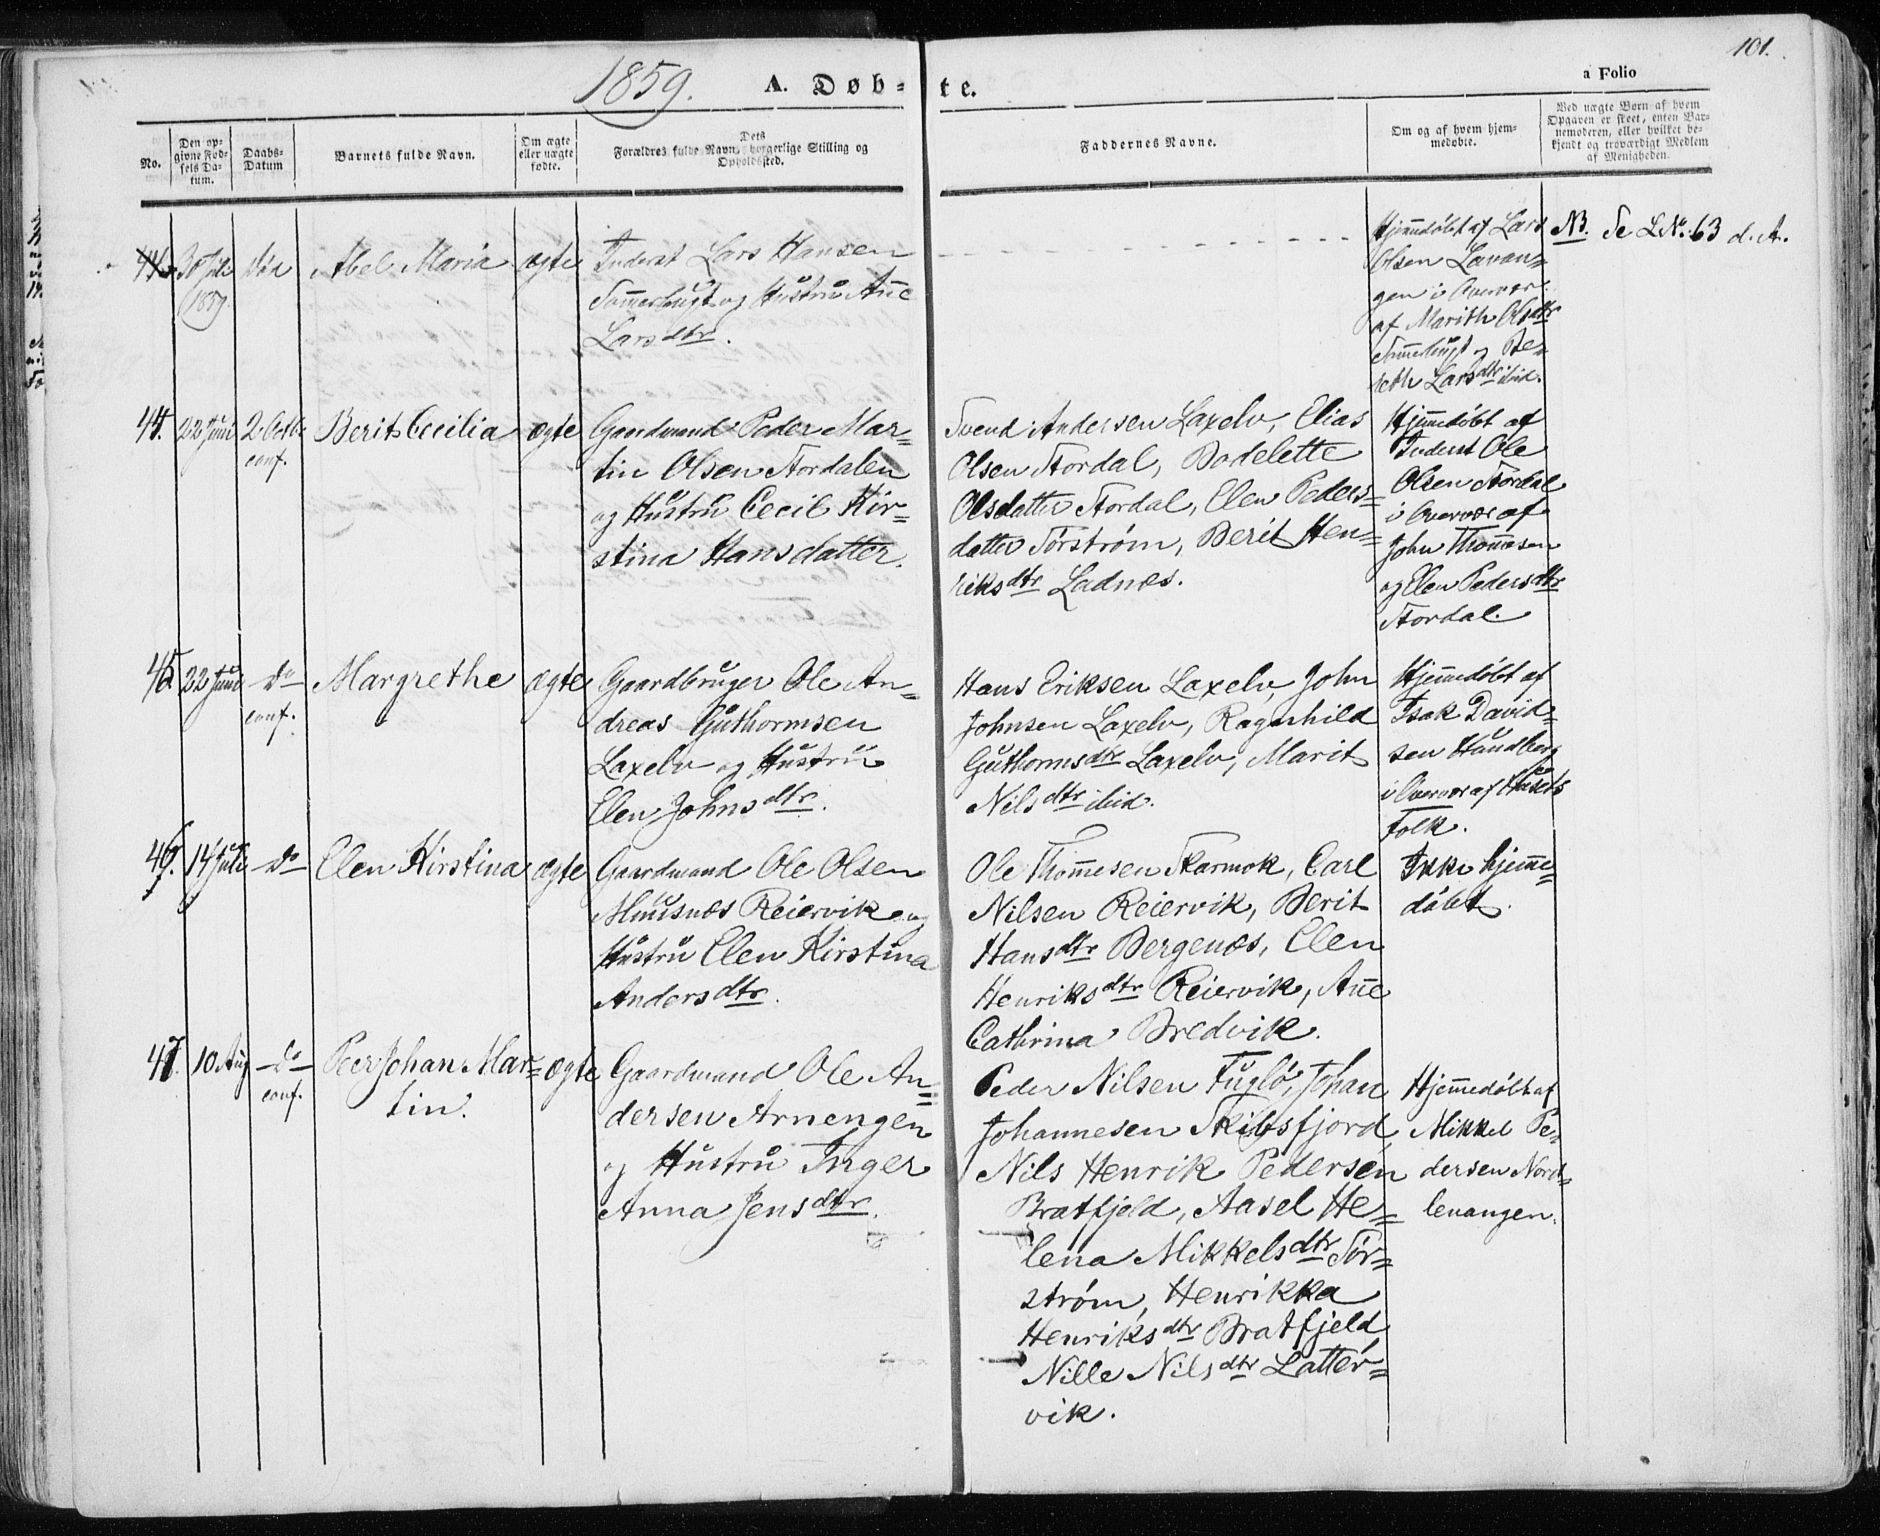 101.
1859. A. Døb-te. a Folio
No.
Den opgivne Fødsels Datum.
Daabs-Datum
Barnets fulde Navn.
Om ægte eller uægte fødte.
Dets Forældres fulde Navn, borgerlige Stilling og Opholdssted.
Faddernes Navne.
Om og af hvem hjemmedøbte.
Ved uægte Børn af hvem Opgaven er skeet, enten Barnemoderen, eller hvilket bekjendt og troværdigt Medlem af Menigheden.
30 Juli
1859.
død
Abel Maria
ægte
Inderst Lars Hansen
og Hustru Ane
Larsdtr.
Hjemmedøbt af Lars
Olsen Lavan-
gen i Overvær
af Marith Olsdtr
og Be-
reth Larsdtr ibid.
NB. Se L No. 63 d. A.
44.
22 Juni
2 Octb.
conf.
Berit Cecilia
ægte
Gaardmand Peder Mar=
tin Olsen Stordalen
og Hustru Cecil Kir=
stina Hansdatter.
Svend Andersen Laxelv, Elias
Olsen Stordal, Bodelette
Olsdatter Stordal, Elen Peders=
datter Sørstrøm, Berit Hen=
riksdtr Ladnæs.
Hjemmedøbt af
Inderst Ole
Olsen Stordal
i Overvær af
John Thommesen
og Elen Pedersdtr
Stordal.
45
22 Juni
Do
conf.
Margrethe
ægte
Gaardbruger Ole An=
dreas Guthormsen
Laxelv og Hustru
Elen Johnsdtr.
Hans Eriksen Laxelv, John
Johnsen Laxelv, Ragnhild
Guthormsdtr Laxelv, Marit
Nilsdtr ibid.
Hjemmedøbt af
Isak David=
sen Hundberg
i Overvær af Husets
Folk.
46.
14 Juli
Do
Elen Kirstina
ægte
Gaardmand Ole Olsen
Reiervik og
Hustru Elen Kirstina
Andersdtr.
Ole Thommesen Skarmok, Carl
Nilsen Reiervik, Berit
Hansdtr Bergenæs, Elen
Henriksdtr Reiervik, Ane
Cathrina Bredvik.
Ikke hjemme=
døbt.
47.
10 Aug
Do
conf.
Peer Johan Mar=
tin.
ægte
Gaardmand Ole An=
dersen Arnengen
og Hustru Inger
Anna Jensdtr.
Peder Nilsen Fuglø, Johan
Johannesen Skibsfjord,
Nils Henrik Pedersen
Bratfjeld, Aasel He=
lena Mikkelsdtr Sør=
strøm, Henrikka
Henriksdtr Bratfjeld,
Nille Nilsdtr Latter=
vik.
Hjemmedøbt af
Mikkel Pe-
dersen Nord=
lenangen.